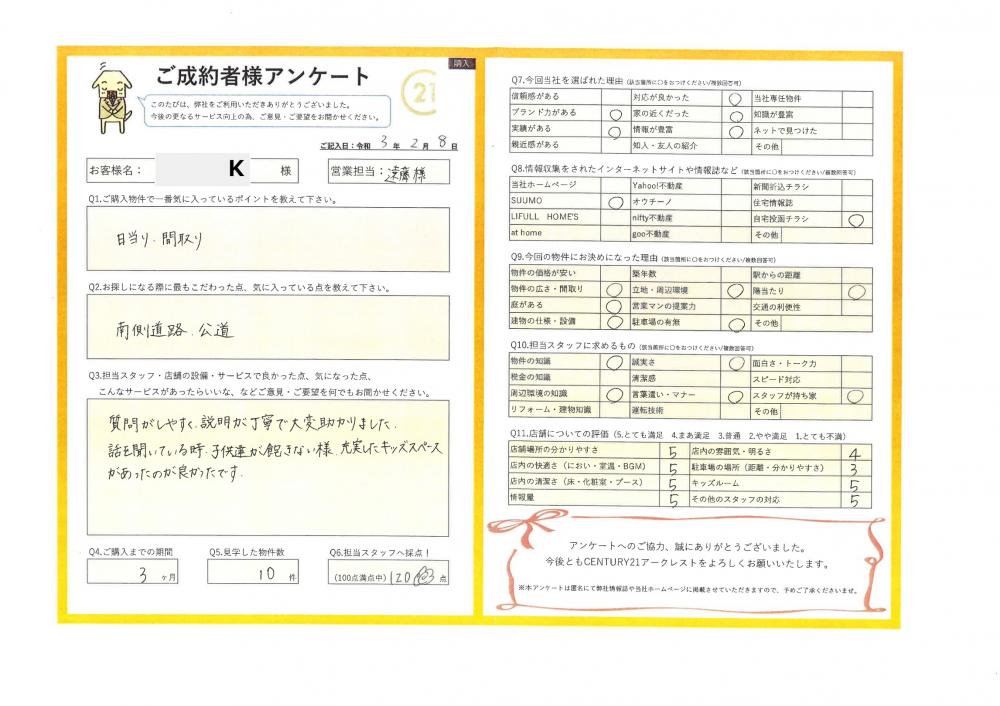 購入
ご成約者様アンケート
21
このたびは、弊社をご利用いただきありがとうございました。
今後の更なるサービス向上の為、ご意見・ご要望をお聞かせください。
ご記入日：令和 3 年 2 月 8 日
お客様名： K 様
営業担当：遠藤様
Q1.ご購入物件で一番気に入っているポイントを教えて下さい。
日当り、間取り
Q2.お探しになる際に最もこだわった点、気に入っている点を教えて下さい。
南側道路、公道
Q3.担当スタッフ・店舗の設備・サービスで良かった点、気になった点、
こんなサービスがあったらいいな、などご意見・ご要望を何でもお聞かせください。
質問がしやすく、説明が丁寧で大変助かりました。
話を聞いている時、子供達が飽きない様、充実したキッズスペース
があったのが良かったです。
Q4.ご購入までの期間
3 ヶ月
Q5.見学した物件数
10 件
Q6.担当スタッフへ採点！
(100点満点中) 120 点
Q7.今回当社を選ばれた理由 (該当箇所に○をおつけください/複数回答可)
信頼感がある 対応が良かった ○ 当社専任物件
ブランド力がある ○ 家の近くだった ○ 知識が豊富
実績がある ○ 情報が豊富 ○ ネットで見つけた
親近感がある 知人・友人の紹介 その他
Q8.情報収集をされたインターネットサイトや情報誌など (該当箇所に○をおつけください/複数回答可)
当社ホームページ Yahoo!不動産 新聞折込チラシ
SUUMO ○ オウチーノ 住宅情報誌
LIFULL HOME'S nifty不動産 自宅投函チラシ ○
at home goo不動産 その他
Q9.今回の物件にお決めになった理由 (該当箇所に○をおつけください/複数回答可)
物件の価格が安い 築年数 駅からの距離
物件の広さ・間取り ○ 立地・周辺環境 ○ 陽当たり ○
庭がある ○ 営業マンの提案力 交通の利便性
建物の仕様・設備 ○ 駐車場の有無 ○ その他
Q10.担当スタッフに求めるもの (該当箇所に○をおつけください/複数回答可)
物件の知識 ○ 誠実さ ○ 面白さ・トーク力
税金の知識 清潔感 スピード対応
周辺環境の知識 ○ 言葉遣い・マナー ○ スタッフが持ち家 ○
リフォーム・建物知識 運転技術 その他
Q11.店舗についての評価 (5.とても満足 4.まあ満足 3.普通 2.やや満足 1.とても不満)
店舗場所の分かりやすさ 5 店内の雰囲気・明るさ 4
店内の快適さ（におい・室温・BGM） 5 駐車場の場所（距離・分かりやすさ） 3
店内の清潔さ（床・化粧室・ブース） 5 キッズルーム 5
情報量 5 その他のスタッフの対応 5
アンケートへのご協力、誠にありがとうございました。
今後ともCENTURY21アークレストをよろしくお願いいたします。
※本アンケートは匿名にて弊社情報誌や当社ホームページに掲載させていただきますので、予めご了承くださいませ。